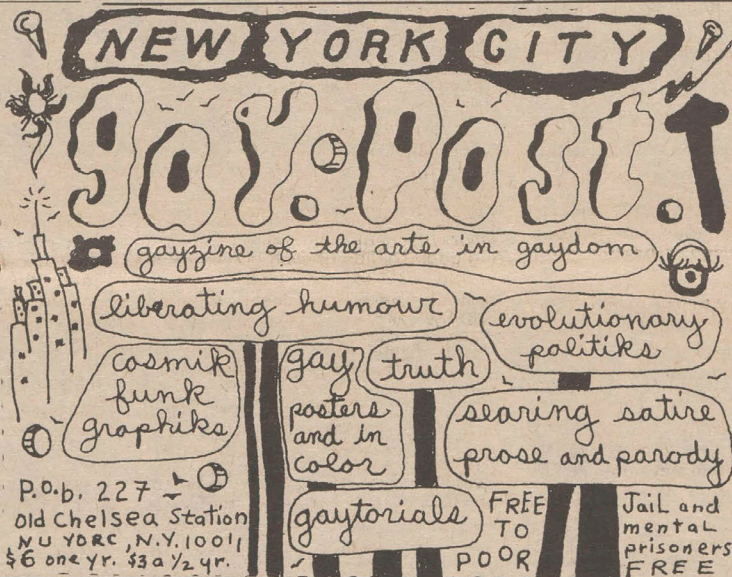 NEW YORK CITY
gay. Post.
gayzine of the arts in gaydom
liberating humour
evolutionary
politiks
cosmik
funk
graphiks
gay
posters
and in
color
truth
searing satire
prose and parody
gaytorials
P.O.b. 227
Old Chelsea Station
NU YORC, N.Y. 10011
$6 one yr. $3 a 1/2 yr.
FREE
TO
POOR
Jail and
mental
prisoners
FREE